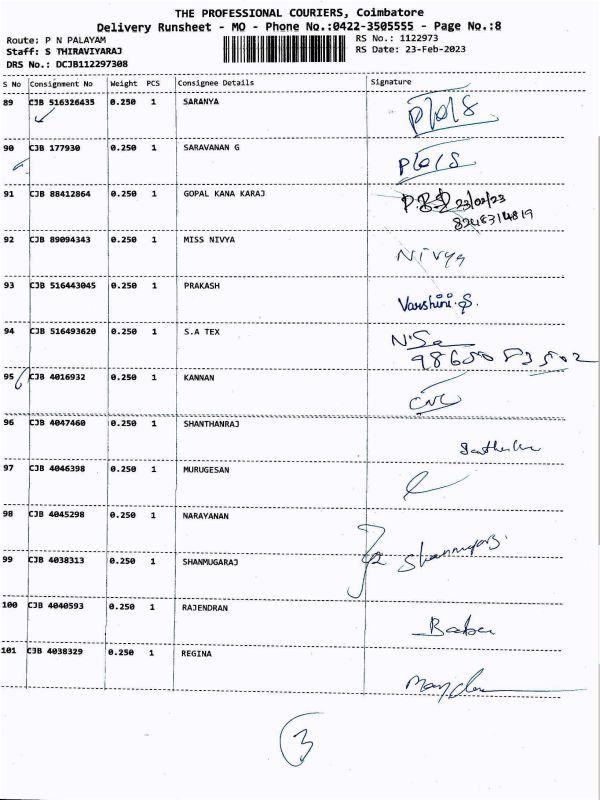 THE PROFESSIONAL COURIERS, Coimbatore
Delivery Runsheet - MO - Phone No.:0422-3505555 - Page No.:8
Route: P N PALAYAM
RS No.: 1122973
Staff: S THIRAVIYARAJ
RS Date: 23-Feb-2023
DRS No.: DCJB112297308
S No Consignment No Weight PCS Consignee Details Signature
89 CJB 516326435 0.250 1 SARANYA
90 CJB 177930 0.250 1 SARAVANAN G
91 CJB 88412864 0.250 1 GOPAL KANA KARAJ 23/02/23
8248314819
92 CJB 89094343 0.250 1 MISS NIVYA Nivya
93 CJB 516443045 0.250 1 PRAKASH Varshini.S.
94 CJB 516493620 0.250 1 S.A TEX
95 CJB 4016932 0.250 1 KANNAN
96 CJB 4047460 0.250 1 SHANTHANRAJ
97 CJB 4046398 0.250 1 MURUGESAN
98 CJB 4045298 0.250 1 NARAYANAN
99 CJB 4038313 0.250 1 SHANMUGARAJ
100 CJB 4040593 0.250 1 RAJENDRAN
101 CJB 4038329 0.250 1 REGINA
3